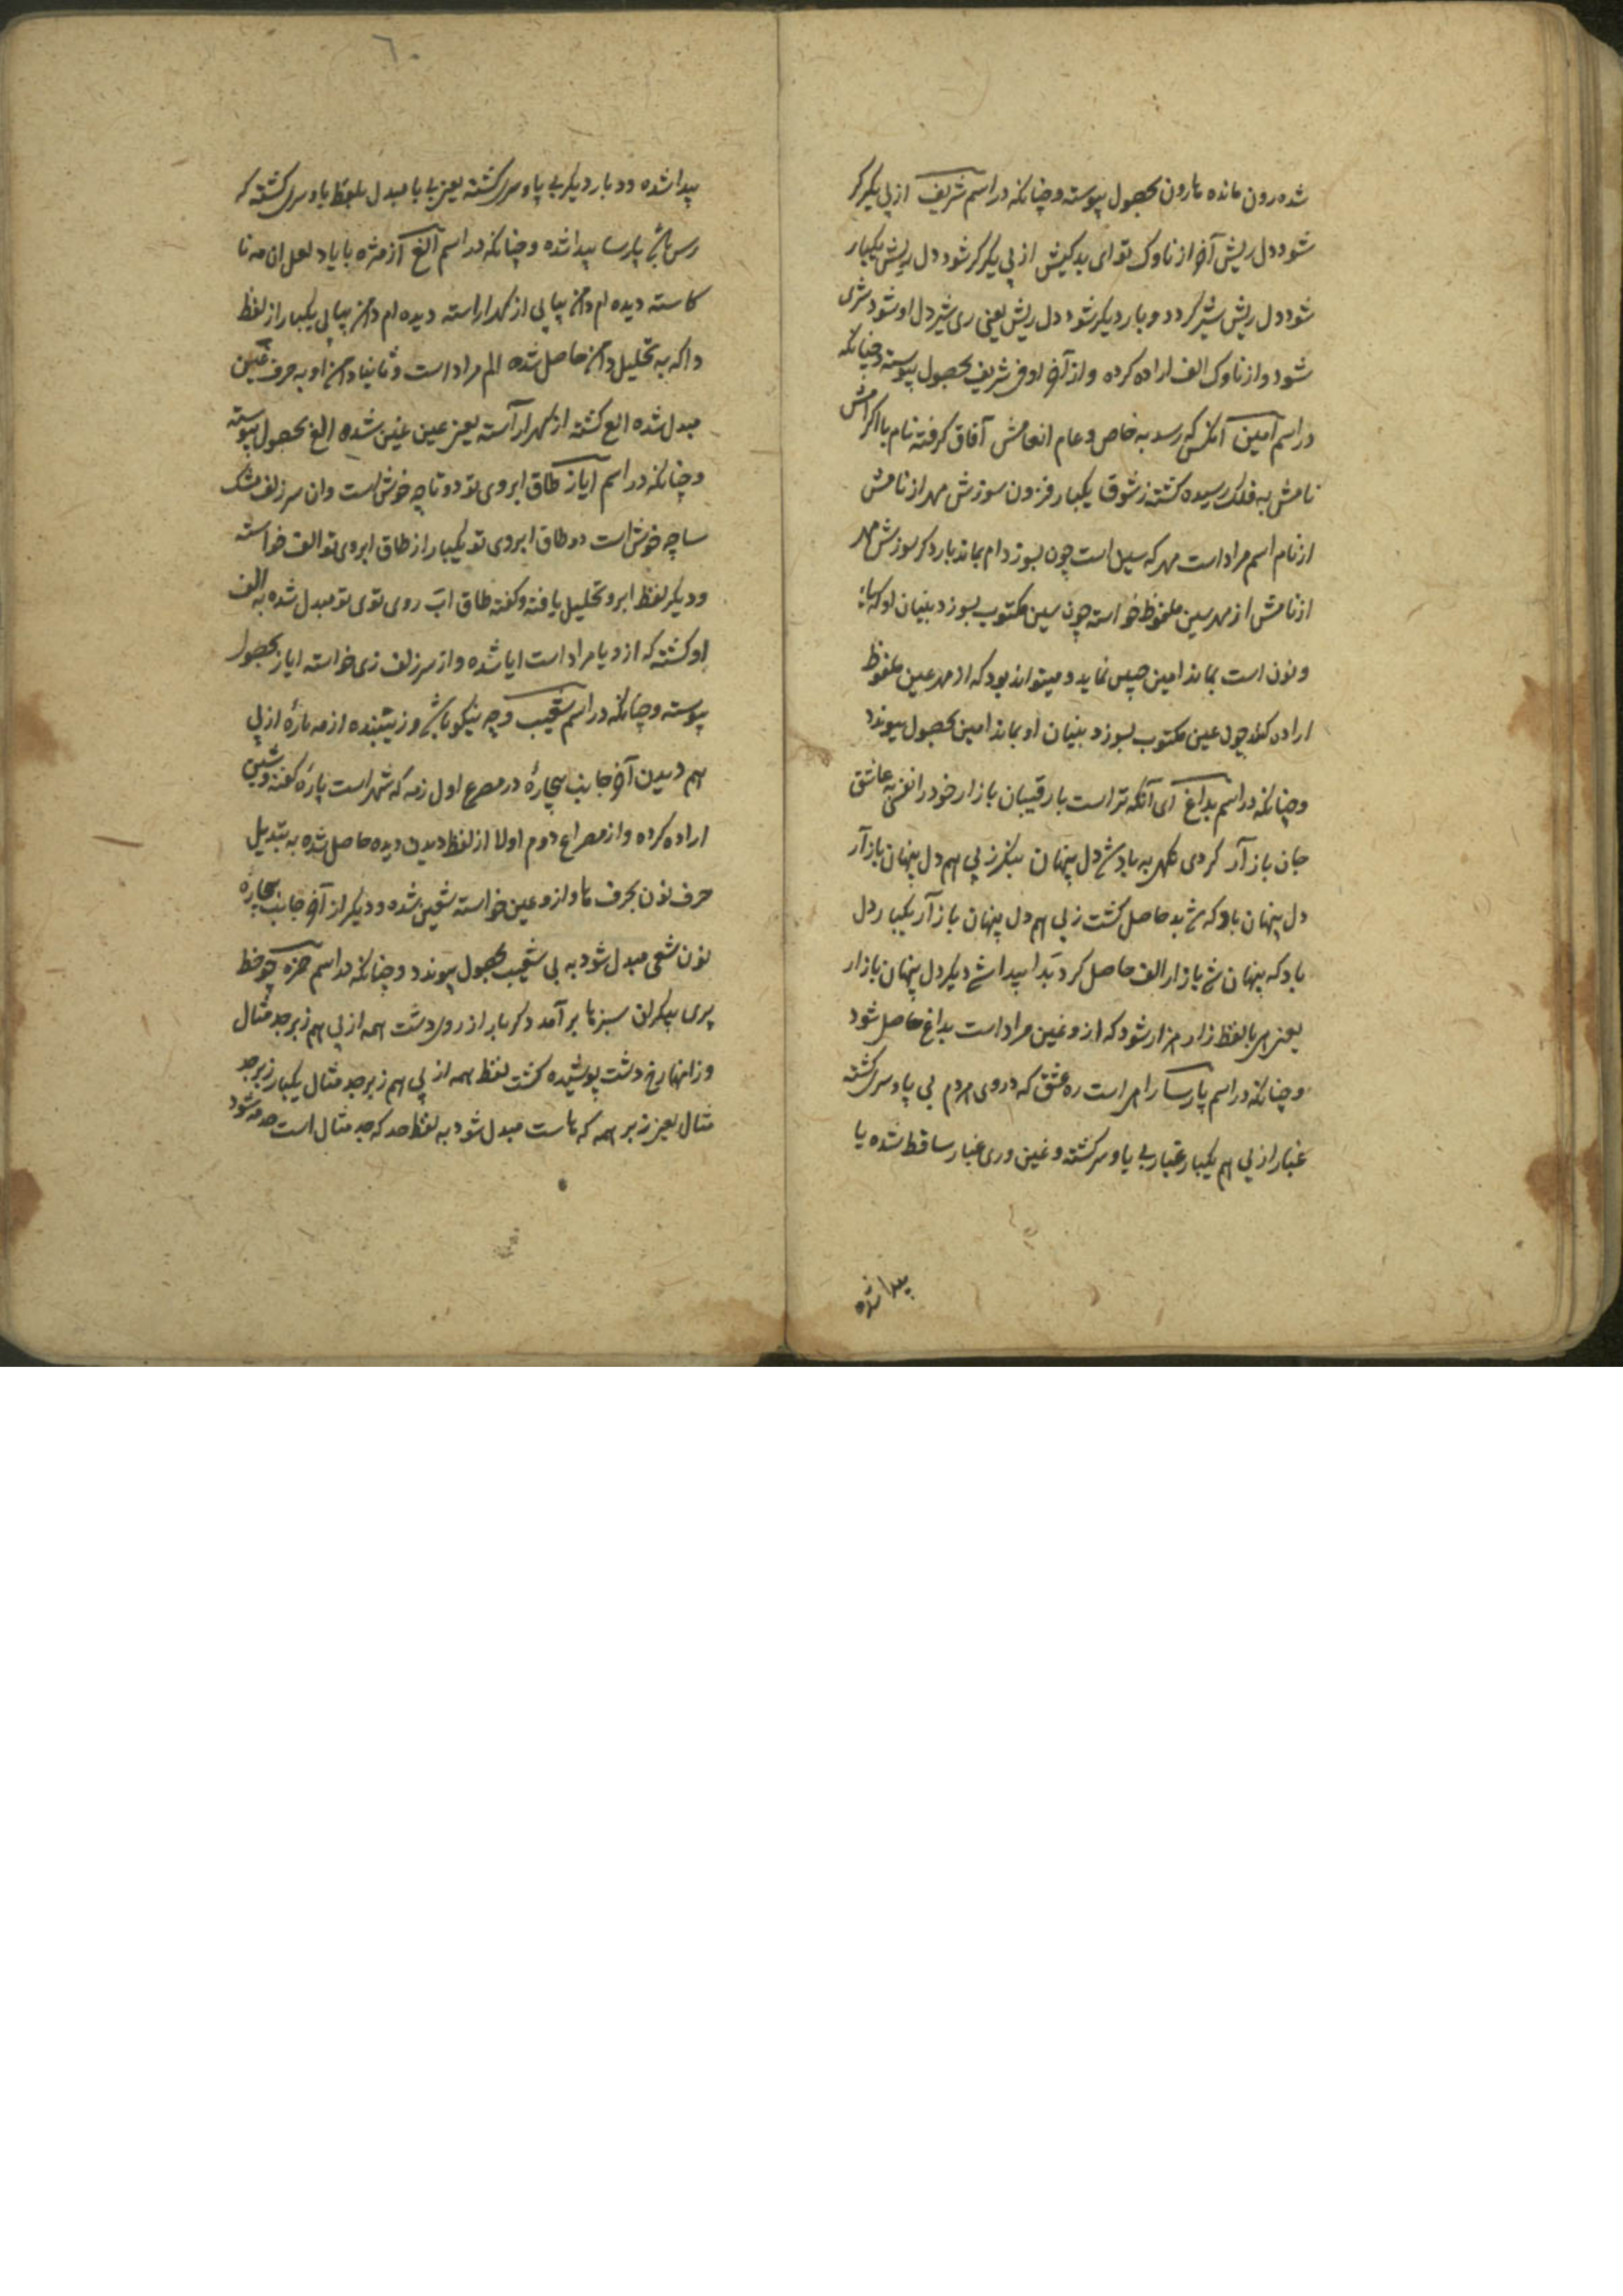 شده رون مانده هارون بحصول پیوسته و چنانکه در اسم شریف از پی یکدگر
شود دل ریش آخر از ناوک تو ای بدکیش از پی یکدگر شود دل ریش یکبار
شود دل ریش شیر گردد و بار دیگر شود دل ریش یعنی ری شیر دل او شود شری
شود و از ناوک الف اراده کرده و از آخر او ف شریف بحصول پیوسته و چنانکه
در اسم امین آنکس که رسد به خاص و عام انعامش آفاق گرفته نام با اکرامش
نامش به فلک رسیده گشته ز شوق یکبار فزون سوزش مهر از نامش
از نام اسم مراد است مهر که سیل است چون بسوزد ام بماند بار دگر سوزش مهر
از نامش از مهر سین ملفوظ خواسته چون سین مکتوب بسوزد بنیان او که یا
و نون است بماند امین حصول نماید و میتواند بود که از مهر عین ملفوظ
اراده کند چون عین مکتوب بسوزد بنیان او بماند امین بحصول پیوندد
و چنانکه در اسم بداغ ای آنکه تراست با رقیبان بازار خود را نفسی به عاشق
جان باز آر کردی گهر به باد شد دل پنهان بنگر ز پی هم دل پنهان باز آر
دل پنهان باد که شد بد حاصل گشت ز پی هم دل پنهان باز آر یکبار دل
باد که پنهان شد باز ار الف حاصل کرد بدا پیدا شد دیگر دل پنهان بازار
یعنی هی با لفظ زار هزار شود که از و غین مراد است بداغ حاصل شود
و چنانکه در اسم پارسا را هر است ره عشق که در وی مردم بی پا و سر گشته
غبار از پی هم یکبار غبار بی پا و سر گشته و غین و ری غبار ساقط شده با
پیدا شده
٦٠
پیدا شده و دو بار دیگر بی پا و سر گشته یعنی با با مبدل بلفظ پا و سر گشته که
رس باشد پارسا پیدا شده و چنانکه در اسم الغ از مژه با یاد لعل ان مه نا
کاسته دیده ام دامن پیاپی از گهر اراسته دیده ام دامن پیاپی یکبار از لفظ
دا که به تحلیل دامن حاصل شده الم مراد است و ثانیا دامن او به حرف عین
مبدل شده الع گشته از گهر آراسته یعنی عین غین شده الغ بحصول پیوسته
و چنانکه در اسم ایاز طاق ابروی تو دو تا چه خوش است وان سر زلف مشک
سا چه خوش است دو طاق ابروی تو یکبار از طاق ابروی تو الف خواسته
و دیگر لفظ ابرو تحلیل یافته و گفته طاق اب روی توی تو مبدل شده به الف
او گشته که از و یا مراد است ایا شده و از سر زلف زی خواسته ایاز بحصول
پیوسته و چنانکه در اسم شعیب وچه نیکو باشد و زیبنده از مه پارهٔ از پی
هم دیدن آخر جانب بیچارهٔ در مصرع اول ز مه که شهر است پاره گفته و شین
اراده کرده و از مصراع دوم اولا از لفظ دیدن دیده حاصل شده به تبدیل
حرف نون بحرف ها و از و عین خواسته شعین شده و دیگر از آخر جانب بیچارهٔ
نون شعی مبدل شود به بی شعیب بحصول پیوندد و چنانکه در اسم حمزه چو خط
پری پیکران سبزها برآمد دگر بار از روی دشت همه از پی هم زبرجد مثال
وز انها رخ دشت پوشیده گشت لفظ همه از پی هم زبرجد مثال یکبار زبرجد
مثال یعنی زبر همه که ها ست مبدل شود به لفظ حد که جد مثال است حد مه شود